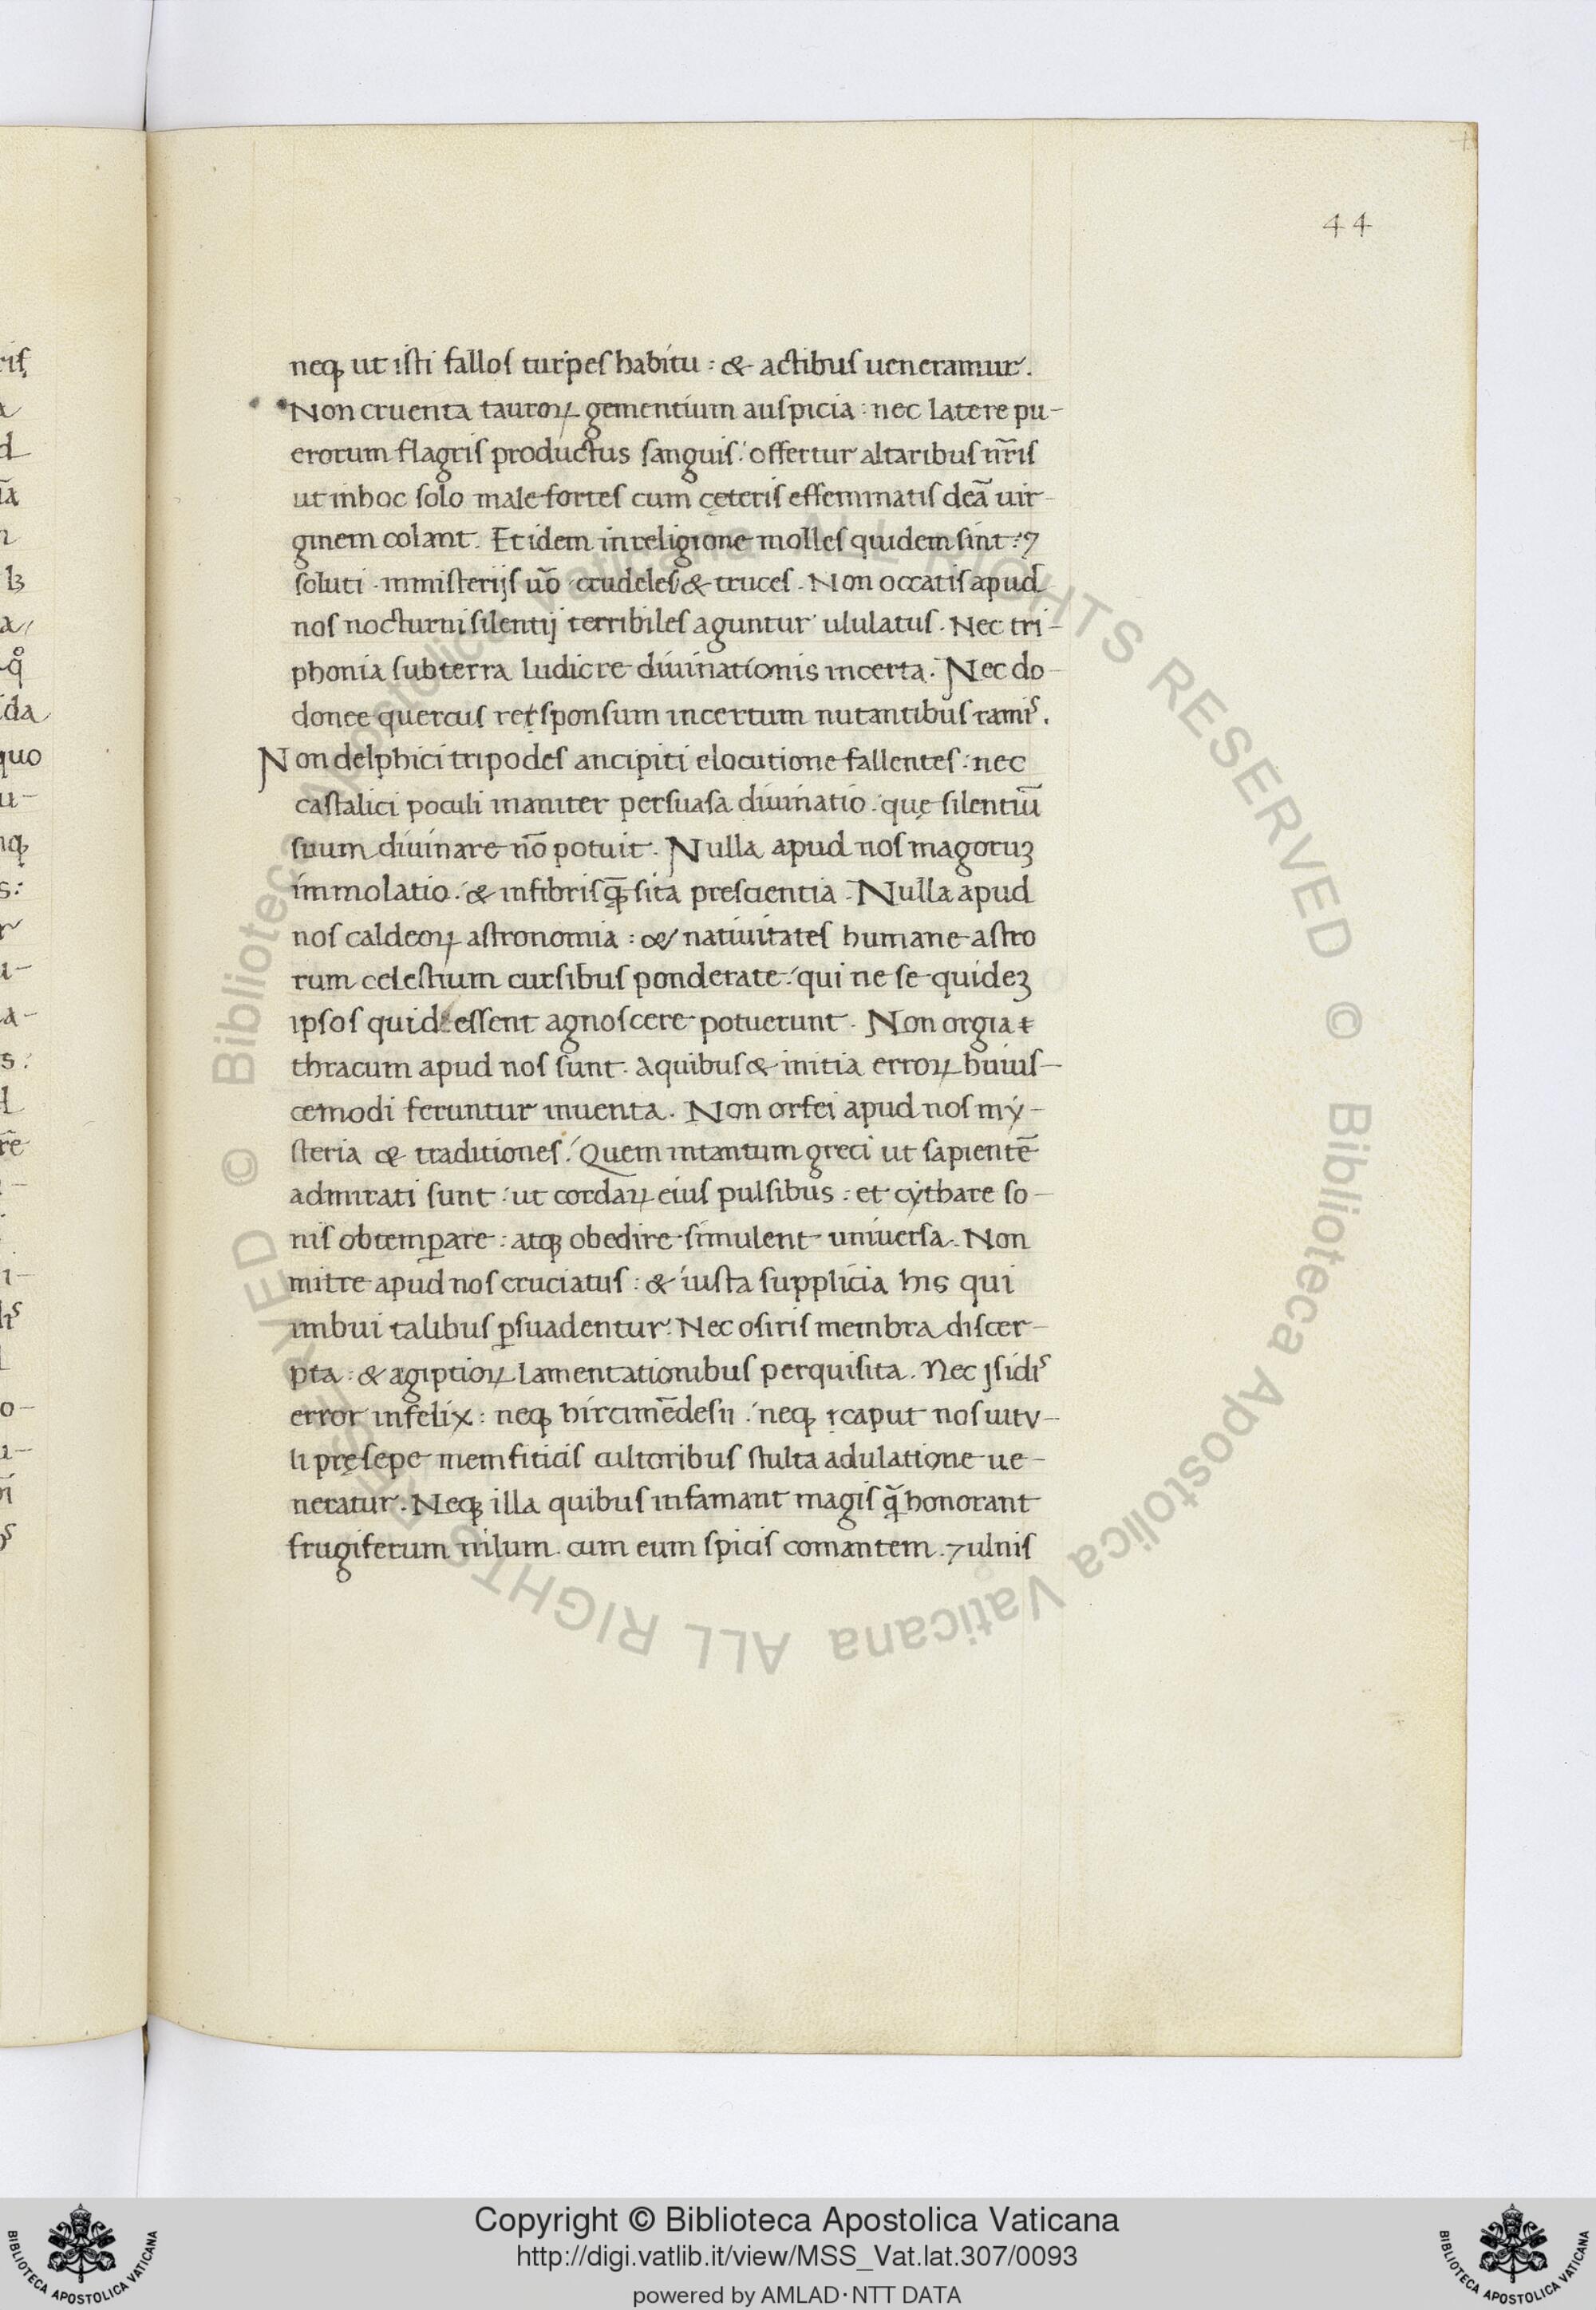 44
neqꝫ ut isti fallos turpes habitu : & actibus ueneramur.
Non cruenta tauroꝝ gementium auspicia : nec latere pu-
erorum flagris productus sanguis : offertur altaribus nr̃is
ut inhoc solo male fortes cum cęteris effeminatis deā uir-
ginem colant. Et idem in religione molles quidem sint : ⁊
soluti . ministerijs uō crudeles & truces. Non occatis apud
nos nocturni silentij terribiles aguntur ululatus. Nec tri-
phonia sub terra ludicre diuinationis incerta. Nec do-
donee quercus retsponsum incertum nutantibus ramis.
Non delphici tripodes ancipiti elocutione fallentes : nec
castalici poculi inaniter persuasa diuinatio : quę silentiū
suum diuinare nō potuit. Nulla apud nos magoruꝫ
immolatio : & infibris q̄sita prescientia. Nulla apud
nos caldeoꝝ astronomia : & natiuitates humane astro
rum celestium cursibus ponderate : qui ne se quideꝫ
ipsos quid essent agnoscere potuerunt. Non orgia
thracum apud nos sunt. Aquibus & initia erroꝝ huius-
cemodi feruntur inuenta. Non orfei apud nos mẏ-
steria & traditiones. Quem intantum greci ut sapientē
admirati sunt : ut cordaꝝ eius pulsibus : et cẏthare so-
nis obtemꝑare : atqꝫ obedire simulent uniuersa. Non
mitre apud nos cruciatus : & iusta supplicia his qui
imbui talibus ꝑsuadentur. Nec osiris membra discer-
pta : & agiptioꝝ lamentationibus perquisita. Nec jsidis
error infelix : neqꝫ hircimēdesii : neqꝫ caput nos uitu-
li pręsepe memfiticis cultoribus stulta adulatione ue-
neratur. Neqꝫ illa quibus infamant magis q̄ honorant
frugiferum nilum. cum eum spicis comantem. ⁊ ulnis
Copyright © Biblioteca Apostolica Vaticana
http://digi.vatlib.it/view/MSS_Vat.lat.307/0093
powered by AMLAD·NTT DATA